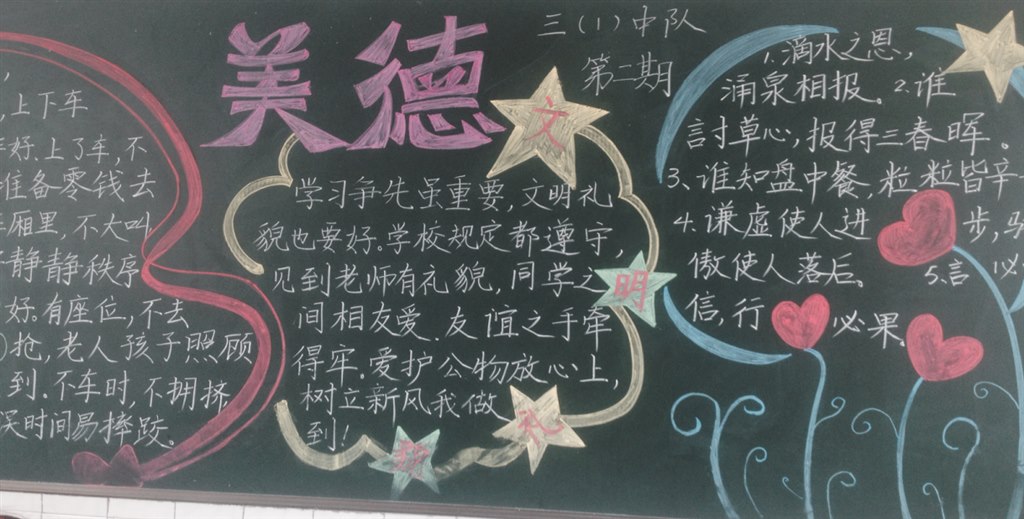 美德
三(1)中队
第二期
,上下车
好.上了车,不
准备零钱去
车厢里,不大叫
静静秩序
好.有座位,不去
抢,老人孩子照顾
到.不车时,不拥挤
时间易摔跤。
文
明
礼
学习争先虽重要,文明礼
貌也要好.学校规定都遵守,
见到老师有礼貌,同学之
间相友爱.友谊之手牵
得牢.爱护公物放心上,
树立新风我做
到!
1.滴水之恩,
涌泉相报。2.谁
討草心,报得三春晖。
3.谁知盘中餐,粒粒皆辛
4.谦虚使人进步,
傲使人落后。5.言必
信,行必果。